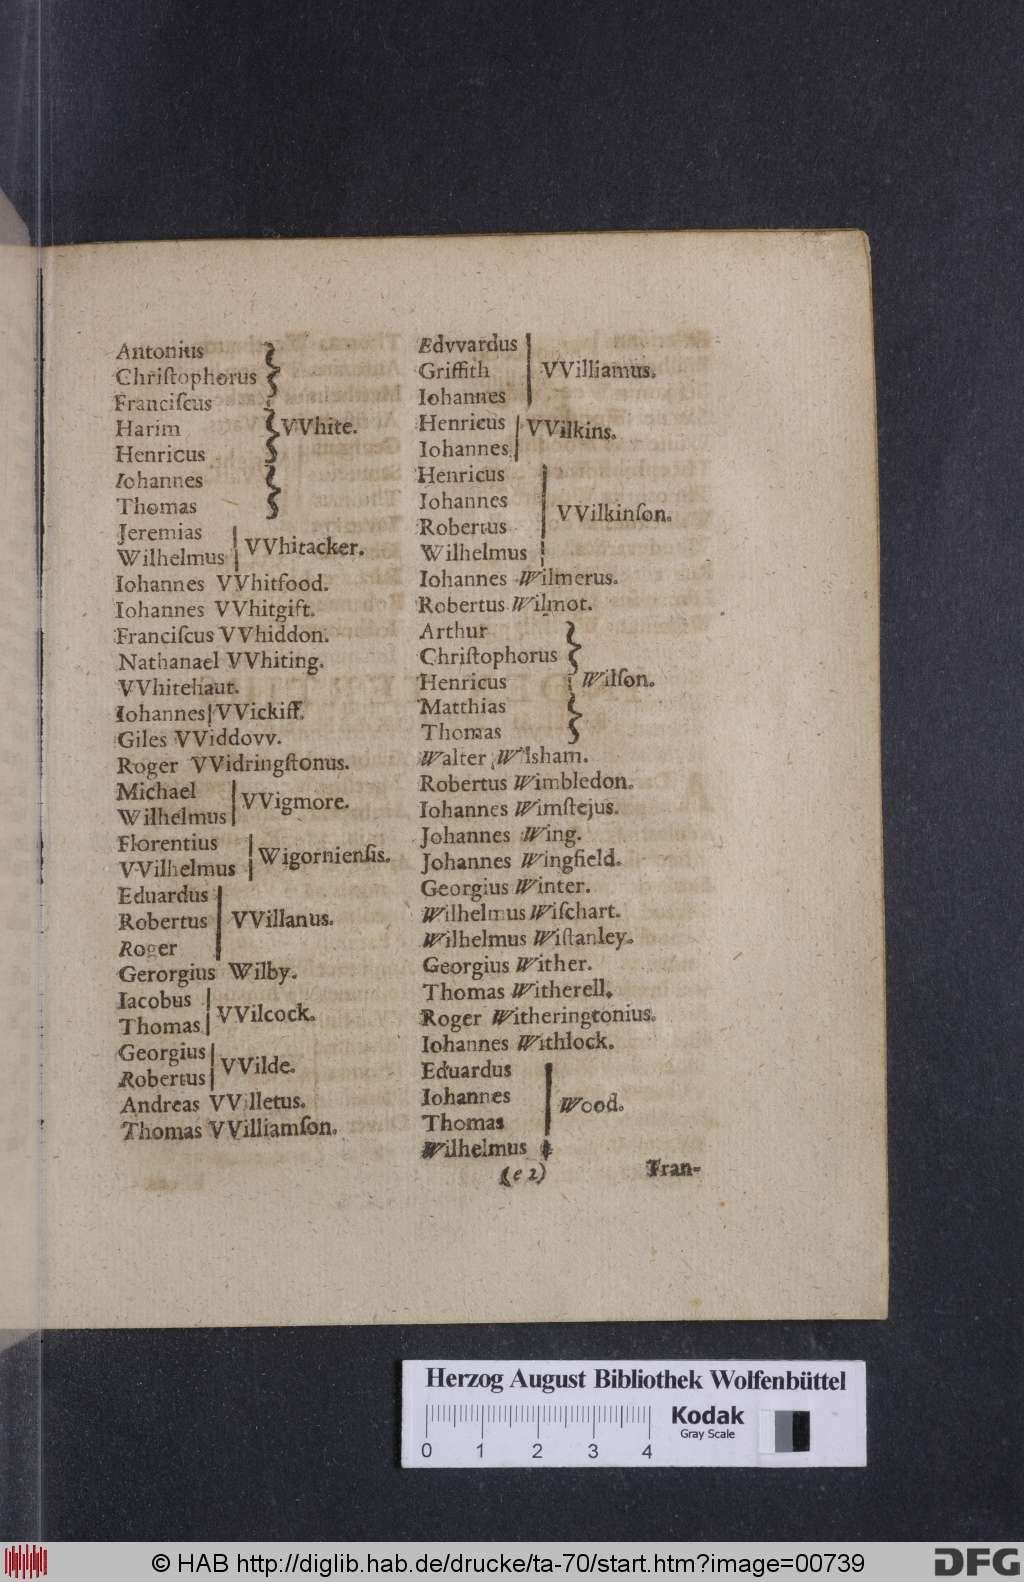 Antonius
Chriſtophorus
Franciſcus
Harim
VVhite.
Henricus
Iohannes
Thomas
Jeremias
VVhitacker.
Wilhelmus
Iohannes VVhitfood.
Iohannes VVhitgift.
Franciſcus VVhiddon.
Nathanael VVhiting.
VVhitehaut.
Iohannes VVickiff.
Giles VViddovv.
Roger VVidringſtonus.
Michael
VVigmore.
Wilhelmus
Florentius
Wigornienſis.
VVilhelmus
Eduardus
Robertus VVillanus.
Roger
Gerorgius Wilby.
Iacobus
VVilcock.
Thomas
Georgius
VVilde.
Robertus
Andreas VVilletus.
Thomas VVilliamſon.
Edvvardus
Griffith VVilliamus.
Iohannes
Henricus
VVilkins.
Iohannes
Henricus
Iohannes
VVilkinſon.
Robertus
Wilhelmus
Iohannes Wilmerus.
Robertus Wilmot.
Arthur
Chriſtophorus
Henricus Wilſon.
Matthias
Thomas
Walter Wilsham.
Robertus Wimbledon.
Iohannes Wimſtejus.
Johannes Wing.
Johannes Wingfield.
Georgius Winter.
Wilhelmus Wiſchart.
Wilhelmus Wiſtanley.
Georgius Wither.
Thomas Witherell.
Roger Witheringtonius.
Iohannes Withlock.
Eduardus
Iohannes
Wood.
Thomas
Wilhelmus
(e 2)
Fran-
Herzog August Bibliothek Wolfenbüttel
Kodak
Gray Scale
0 1 2 3 4
© HAB http://diglib.hab.de/drucke/ta-70/start.htm?image=00739
DFG